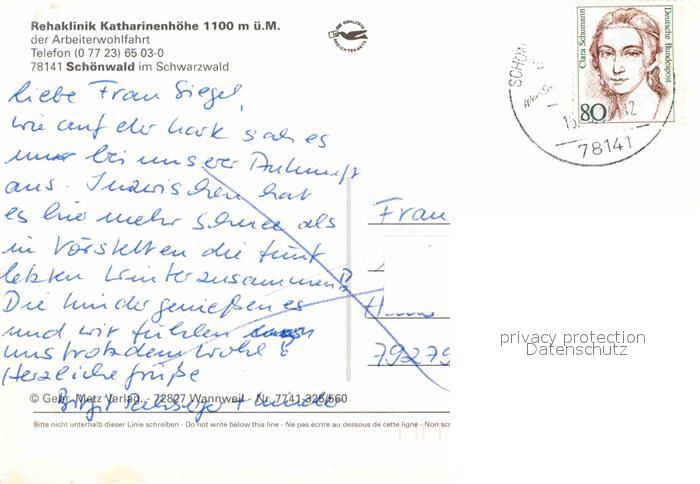 Rehaklinik Katharinenhöhe 1100 m ü.M.
der Arbeiterwohlfahrt
Telefon (0 77 23) 65 03-0
78141 Schönwald im Schwarzwald
Clara Schumann
Deutsche Bundespost
80
SCHÖN
78141
Liebe Frau Siegel,
wie auf der sah es
nur bei unserer Ankunft
aus. Inzwischen hat
es hier mehr Schnee als
in Vörstetten die fünf
letzten Winter zusammen!
Die Kinder genießen es
und wir fühlen
uns trotzdem wohl!
Herzliche Grüße
Birgit +
Frau
79279
privacy protection
Datenschutz
© Gebr. Metz Verlag - 72827 Wannweil - Nr. 7741 325/560
Bitte nicht unterhalb dieser Linie schreiben - Do not write below this line - Ne pas écrire au dessous de cette ligne - Non sc